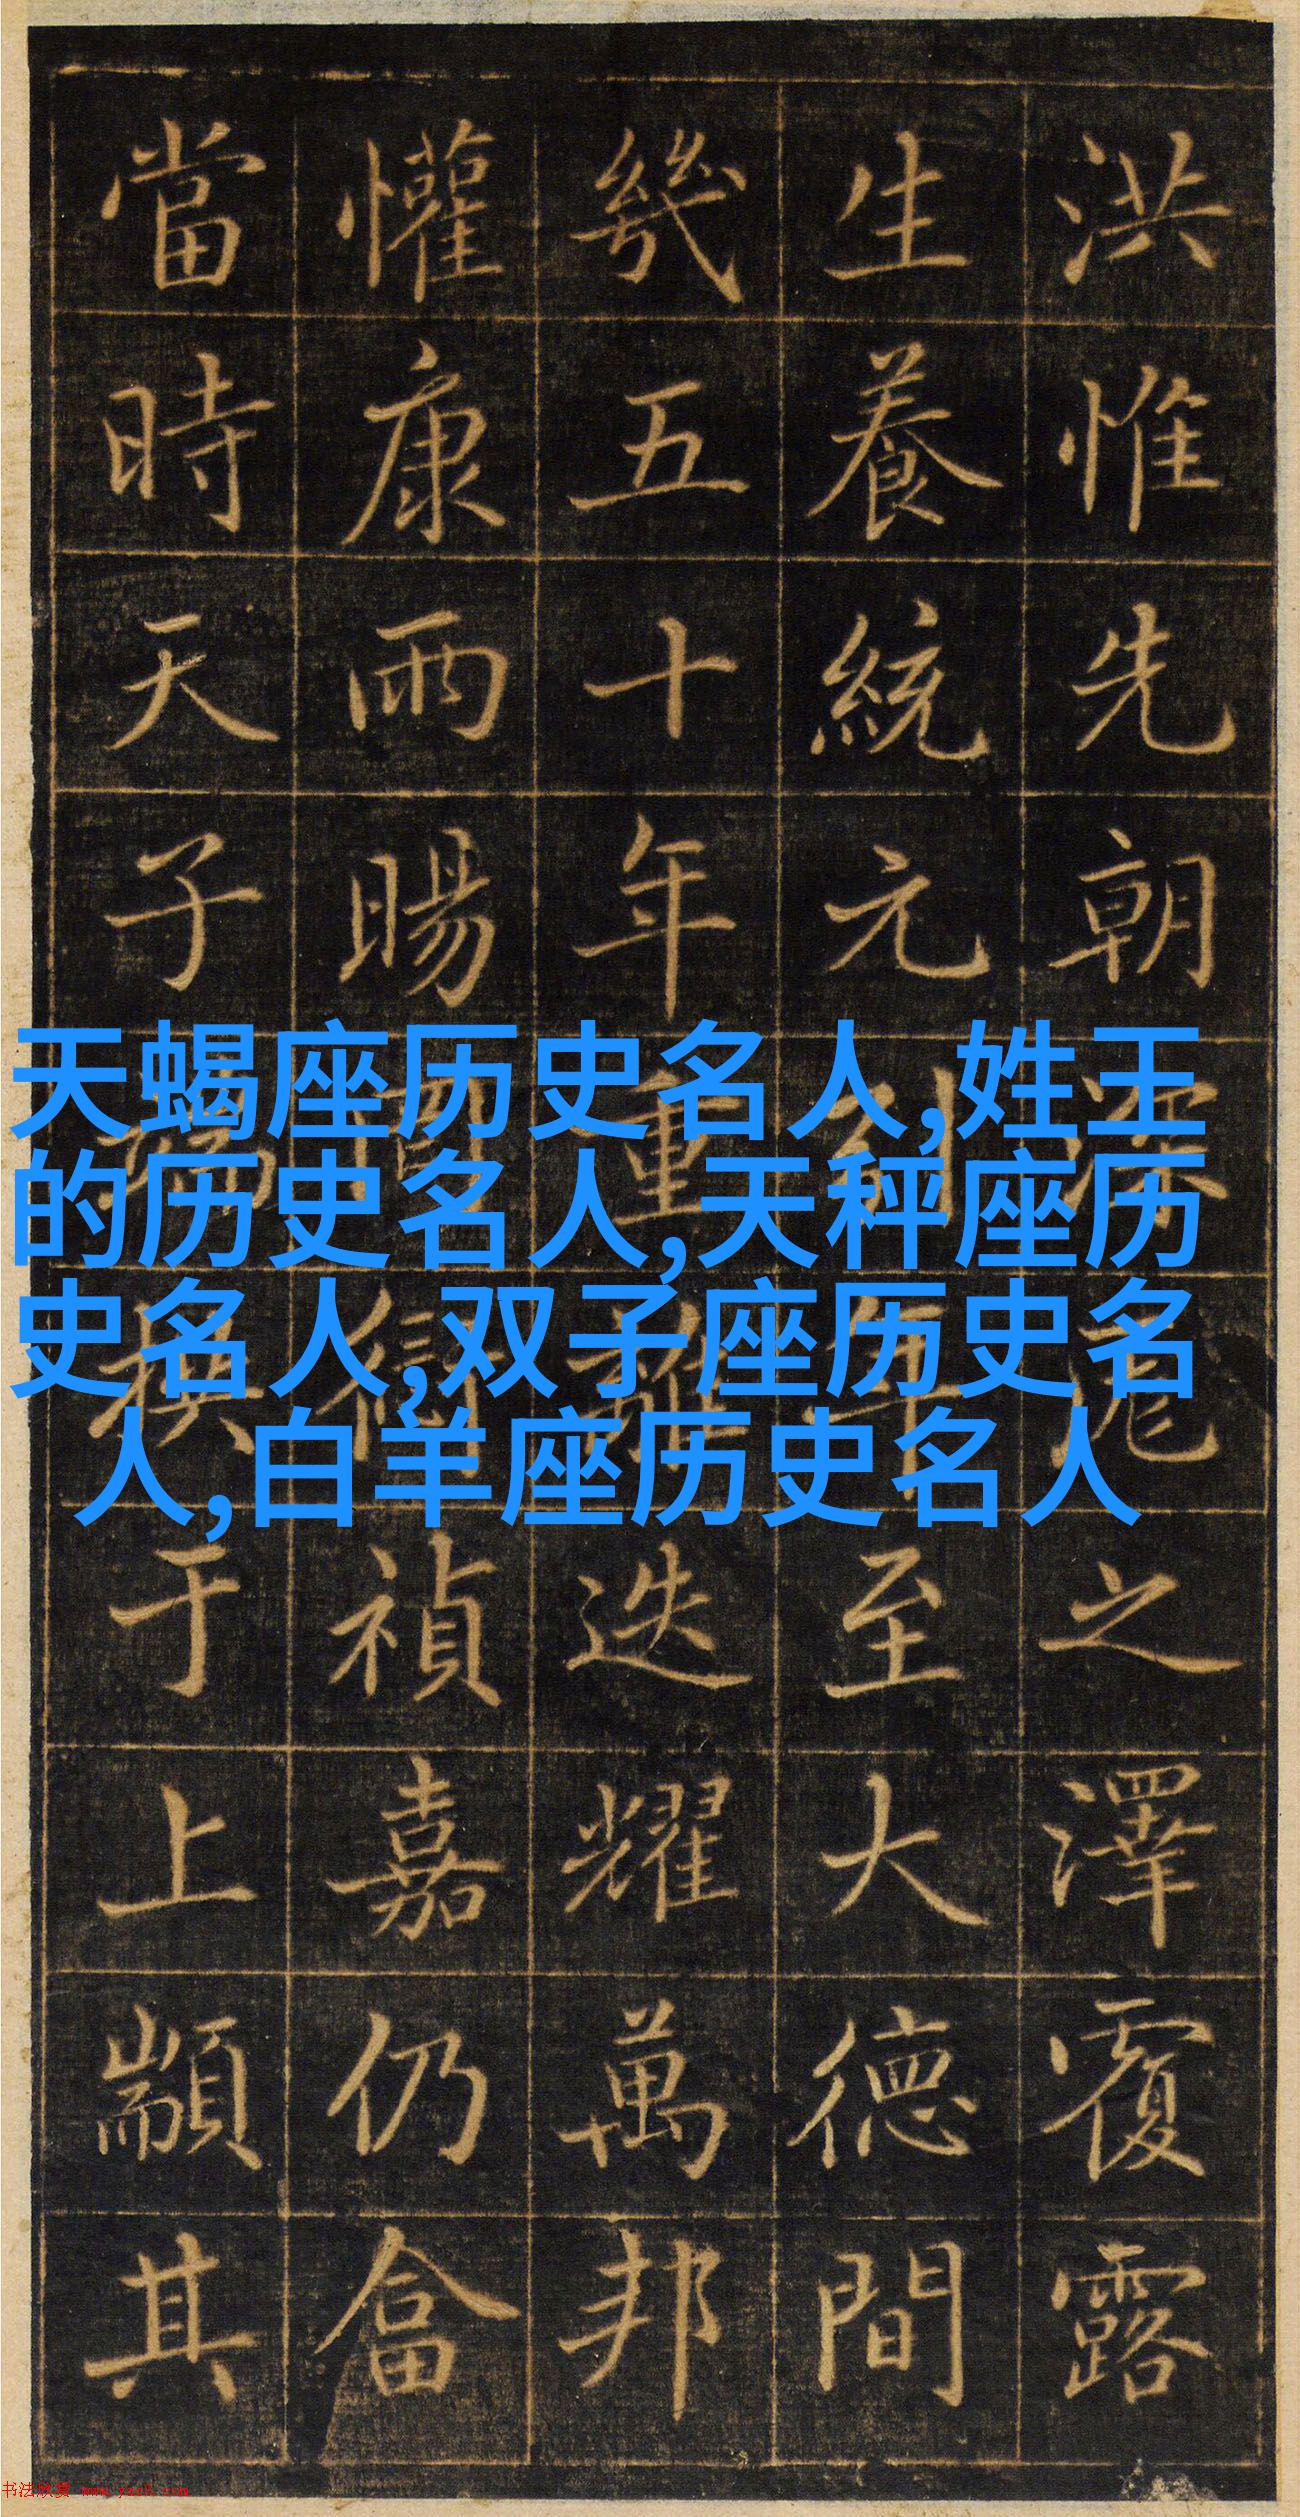 洪惟先朝深之澤覆露
生養統元年至大德間
幾五十年重離迭耀萬邦
懽康雨暘禎嘉仍畣
當時天子端拱于上顒其
天蝎座历史名人,姓王
的历史名人,天秤座历
史名人,双子座历史名
人,白羊座历史名人
书法欣赏 www.yac8.com